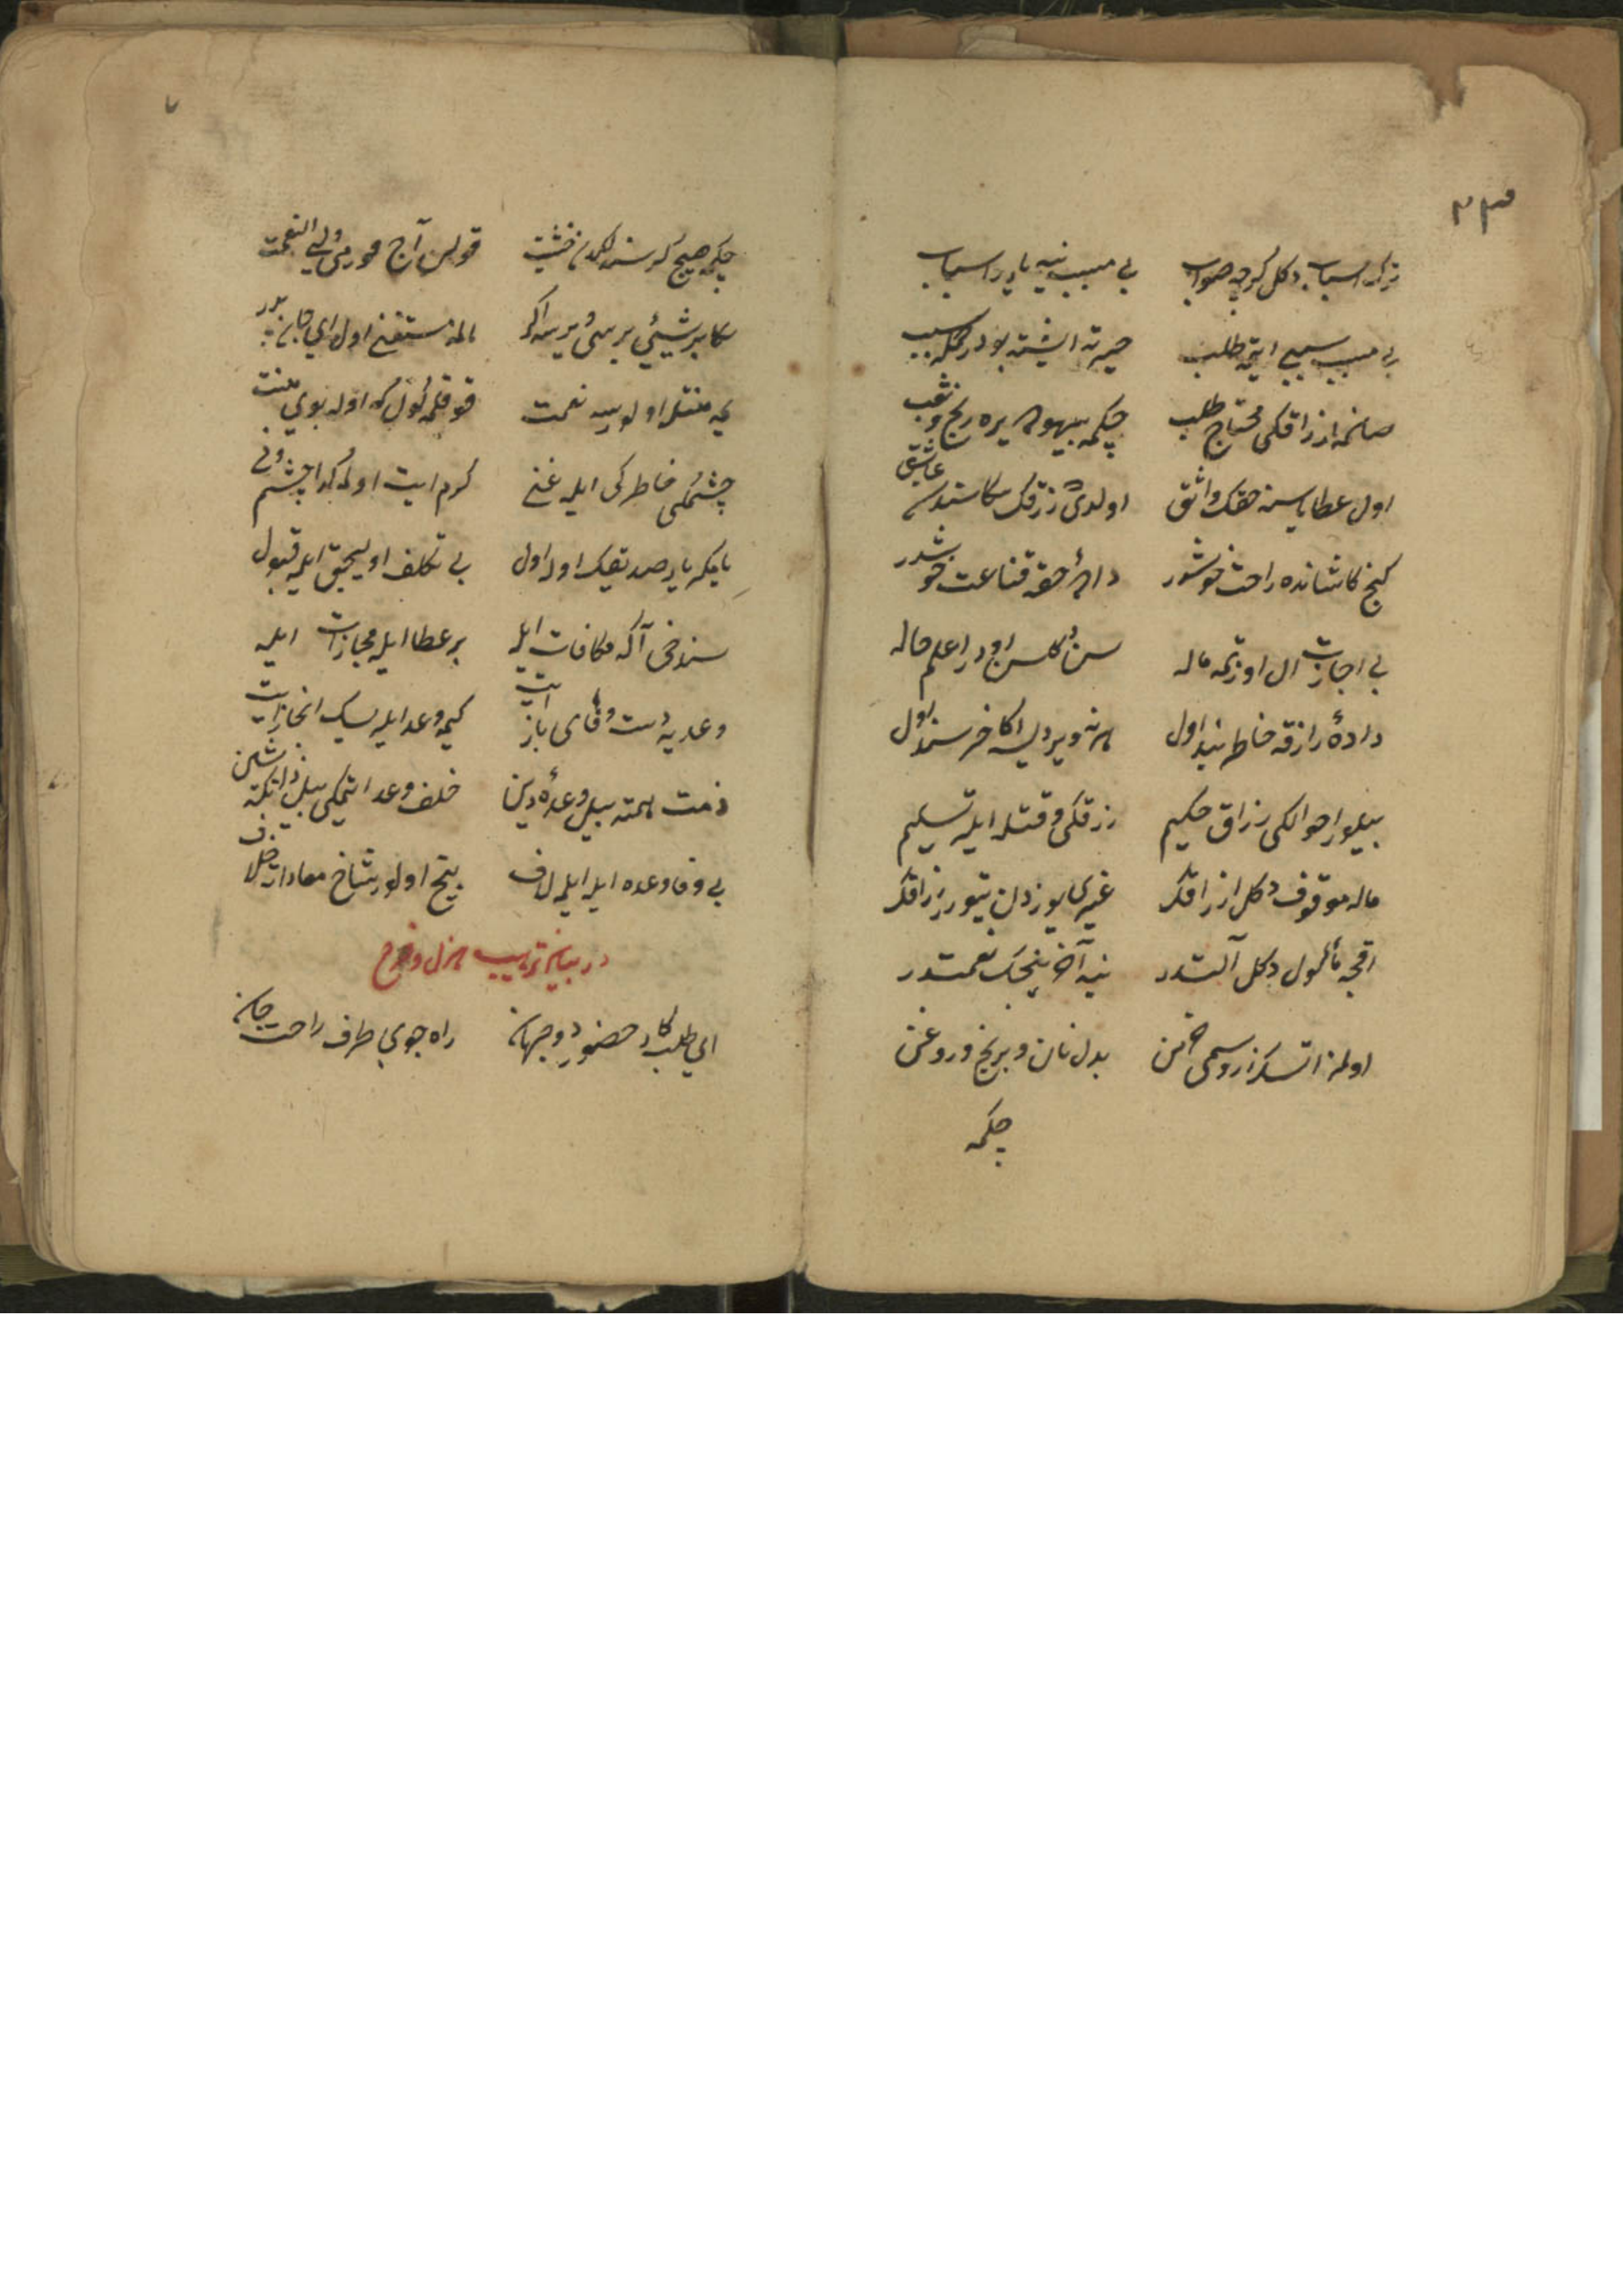 ٢٣
ترك اسباب دكل كرچه صواب بى مسبب نيه يارار اسباب
بى مسبب سببى ايتمه طلب حيرته ايشته بودر جمله سبب
صانمه ارزاقكى محتاج طلب چكمه بيهوده يره رنج و تعب
اول عطاياسنه حقك واثق اولدى رزقك سكا سندن عاشق
كنج كاشانده راحت خوشدر داده حقه قناعت خوشدر
بى اجازت ال اوزتمه ماله سن دكلسن اودر اعلم حاله
داده رازقه خاطر بند اول هر نه ويرديسه اكا خرسند اول
بيلور احوالكى رزاق حكيم رزقكى وقتله ايلر تسليم
ماله موقوف دكل ارزاقك غيرى يوزدن يتورر رزاقك
اقچه مأكول دكل آلتدر نيه آخر نيجه نعمتدر
اولمز اتسك زر و سيمى خرمن بدل نان و برنج و روغن
چكمه
٧
چكمه هيچ كرسنه لكدن خشيت قولن آج قورمى ولى النعمت
سكا بر شيئى بريسى ويرسه اكر المه مستغنى اول اى جان پدر
يه منتله اولورسه نعمت قوقلمه كول كه اوله بوى منت
چشمكى خاطركى ايله غنى كرم ايت اولمه كدا چشم دنى
ياكه يار صديقك اوله اول بى تكلف اوليجق ايله قبول
سن دخى آكه مكافات ايله بر عطا ايله مجازات ايله
وعديه دست وفاى باز ايت كيمه وعد ايلرسك انجاز ايت
ذمت همته بيل وعده دين خلف وعد ايتمكى بيل ذلته شين
بى وفا وعده ايله ايلمه لاف بيخ اولور شاخ معاداته خلاف
در بيان ترتيب هزل و مزاح
اى طلبكار حضور دو جهان راه جوى طرف راحت جان